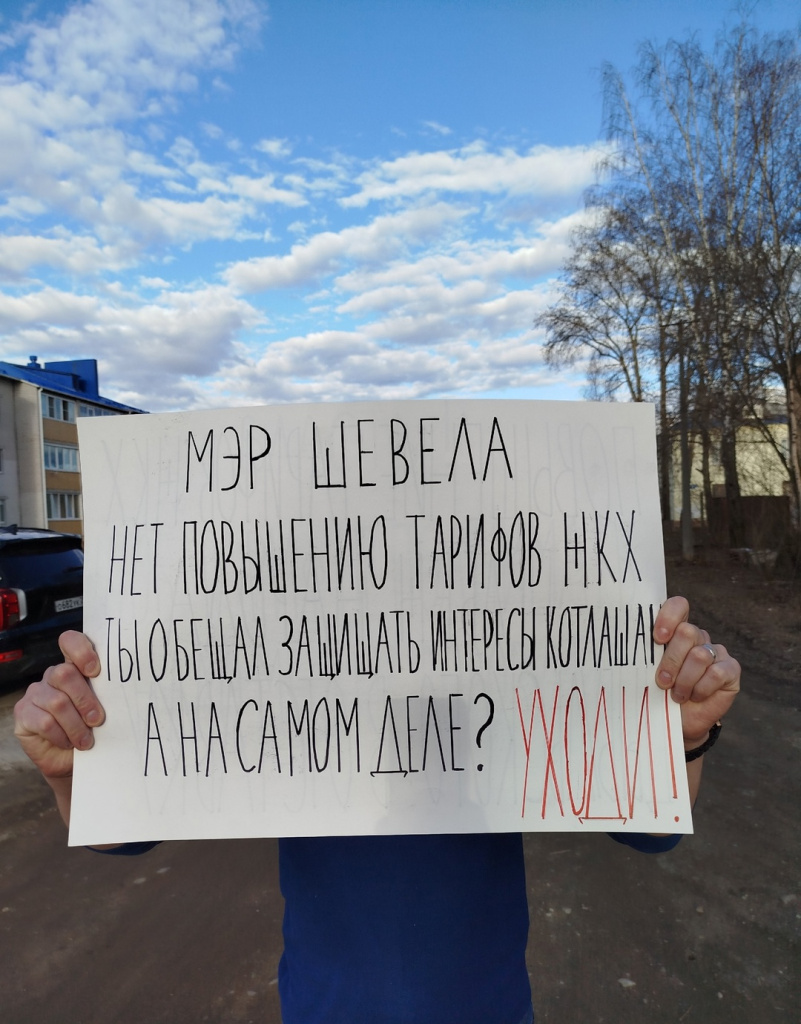 МЭР ШЕВЕЛА
НЕТ ПОВЫШЕНИЮ ТАРИФОВ ЖКХ
ТЫ ОБЕЩАЛ ЗАЩИЩАТЬ ИНТЕРЕСЫ КОТЛАШАН
А НА САМОМ ДЕЛЕ? УХОДИ!